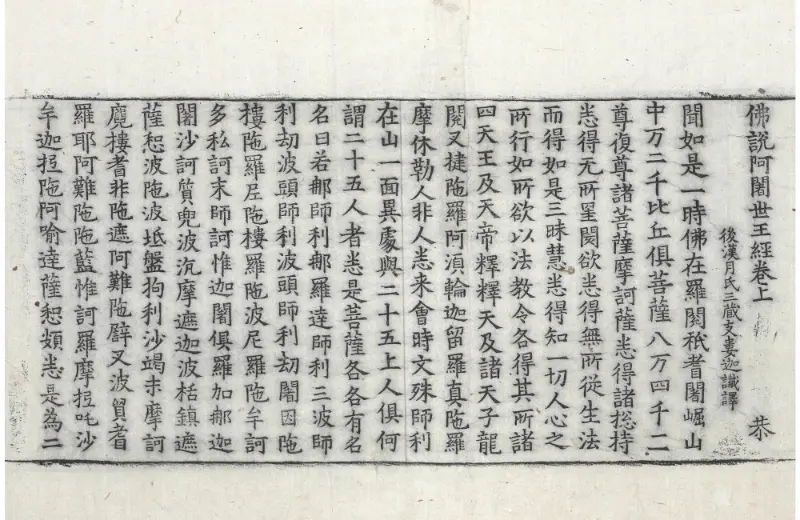 佛說阿闍世王經卷上 恭
後漢月氏三藏支婁迦讖譯
聞如是一時佛在羅閱祇耆闍崛山
中万二千比丘俱菩薩八万四千二
尊復尊諸菩薩摩訶薩悉得諸揔持
悉得无所罣閡欲悉得無所從生法
而得如是三昧慧悉得知一切人心之
所行如所欲以法教令各得其所諸
四天王及天帝釋釋天及諸天子龍
閱叉揵陁羅阿湏輪迦留羅真陁羅
摩休勒人非人悉来會時文殊師利
在山一面異處與二十五上人俱何
謂二十五人者悉是菩薩各各有名
名曰若郍師利郍羅達師利三波師
利劫波頭師利波頭師利劫闍因陁
樓陁羅尼陁樓羅陁波尼羅陁牟訶
多私訶末師訶惟迦闍俱羅加郍迦
闍沙訶質兜波沉摩遮迦波栝鎮遮
薩恕波陁波坻盤拘利沙竭末摩訶
魔樓耆非陁遮阿難陁譬叉波貿耆
羅耶阿難陁陁藍惟訶羅摩拉吒沙
牟迦拉陁阿喻達薩恕頞悉是為二